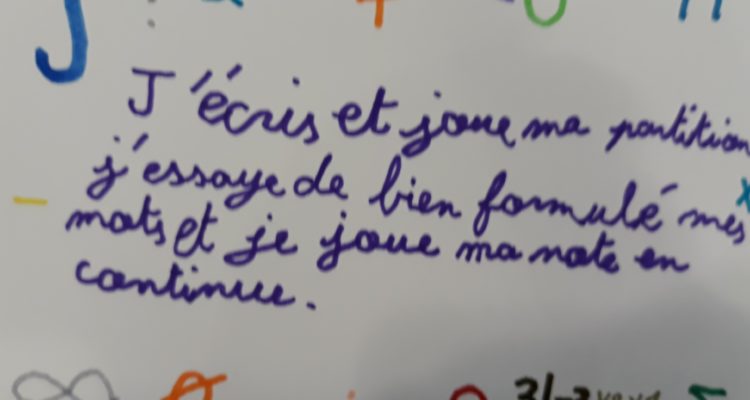 J'écris et joue ma partition
j'essaye de bien formulé mes
mots et je joue ma note en
continue.